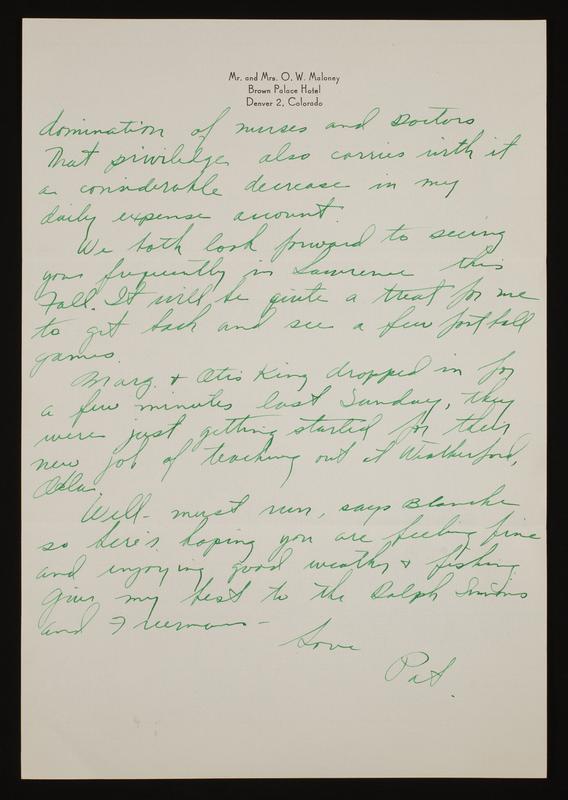 Mr. and Mrs. O. W. Maloney
Brown Palace Hotel
Denver 2, Colorado
domination of nurses and Doctors
That priviledge also carries with it
a considerable decrease in my
daily expense account.
We both look forward to seeing
you frequently in Lawrence this
Fall. It will be quite a treat for me
to get back and see a few football
games.
Marg. & Otis King dropped in for
a few minutes last Sunday, they
were just getting started for their
new job of teaching out at Weatherford,
Okla.
Well - must run, says Blanche
so here's hoping you are feeling fine
and enjoying good weather & fishing
Give my best to the Ralph
and Freemans -
Love
Pat.